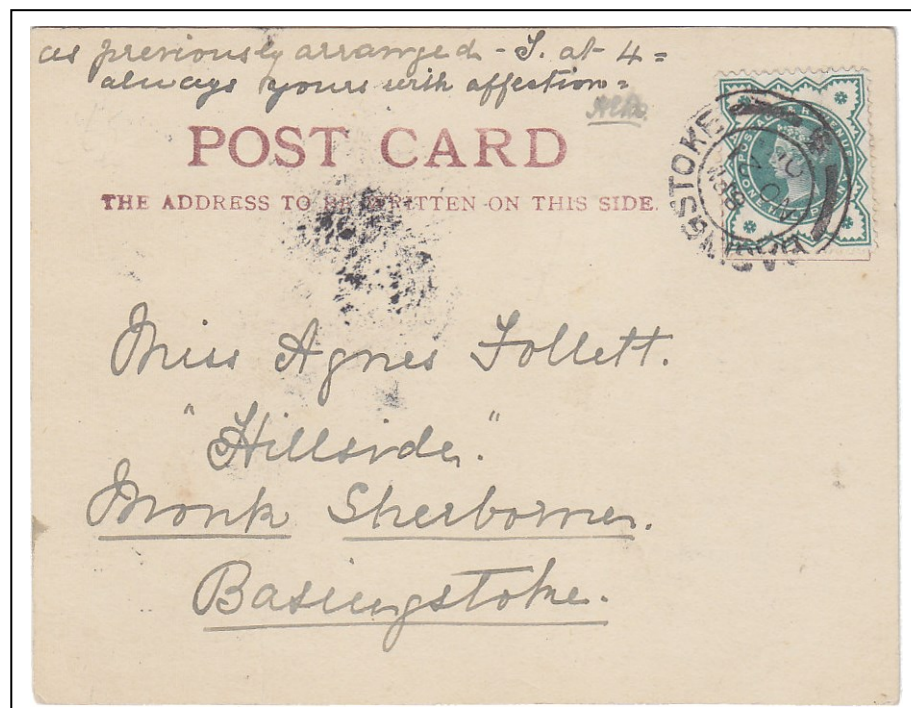 as previously arranged - S. at 4 =
always yours with affection =
POST CARD
THE ADDRESS TO BE WRITTEN ON THIS SIDE.
BASINGSTOKE
Miss Agnes Follett.
"Hillside."
Monk Sherborne.
Basingstoke.